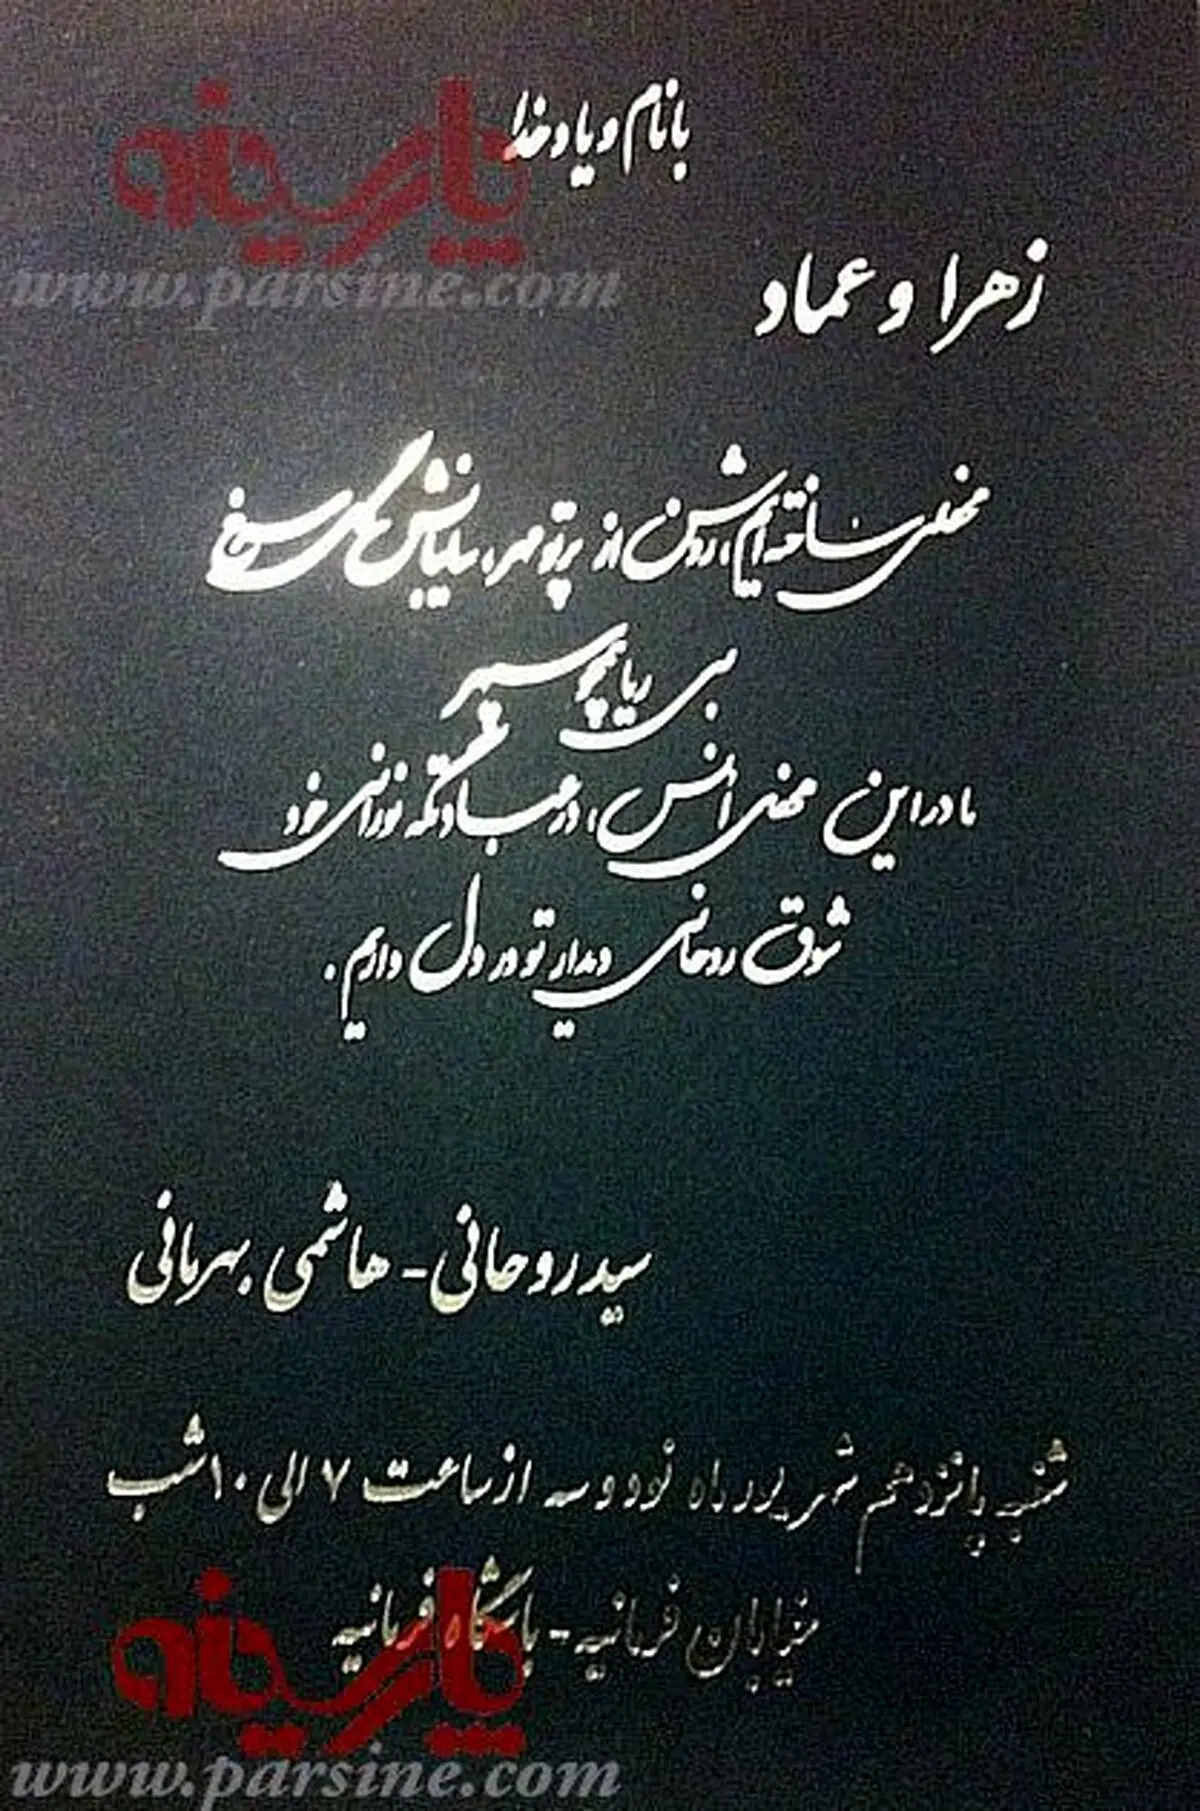 با نام و یاد خدا
پارسینه
www.parsine.com
زهرا و عماد
محفلی ساخته‌ایم، روشن از پرتو مهر، سایبانش گل سرخ
بی ریا همچو سپهر
ما در این محفل اُنس، در عبادتگه نورانی خود
شوق روحانی دیدار تو در دل داریم.
سید روحانی - هاشمی بهرمانی
شنبه پانزدهم شهریور ماه نود و سه از ساعت ۷ الی ۱۰ شب
خیابان فرمانیه - باشگاه فرمانیه
پارسینه
www.parsine.com